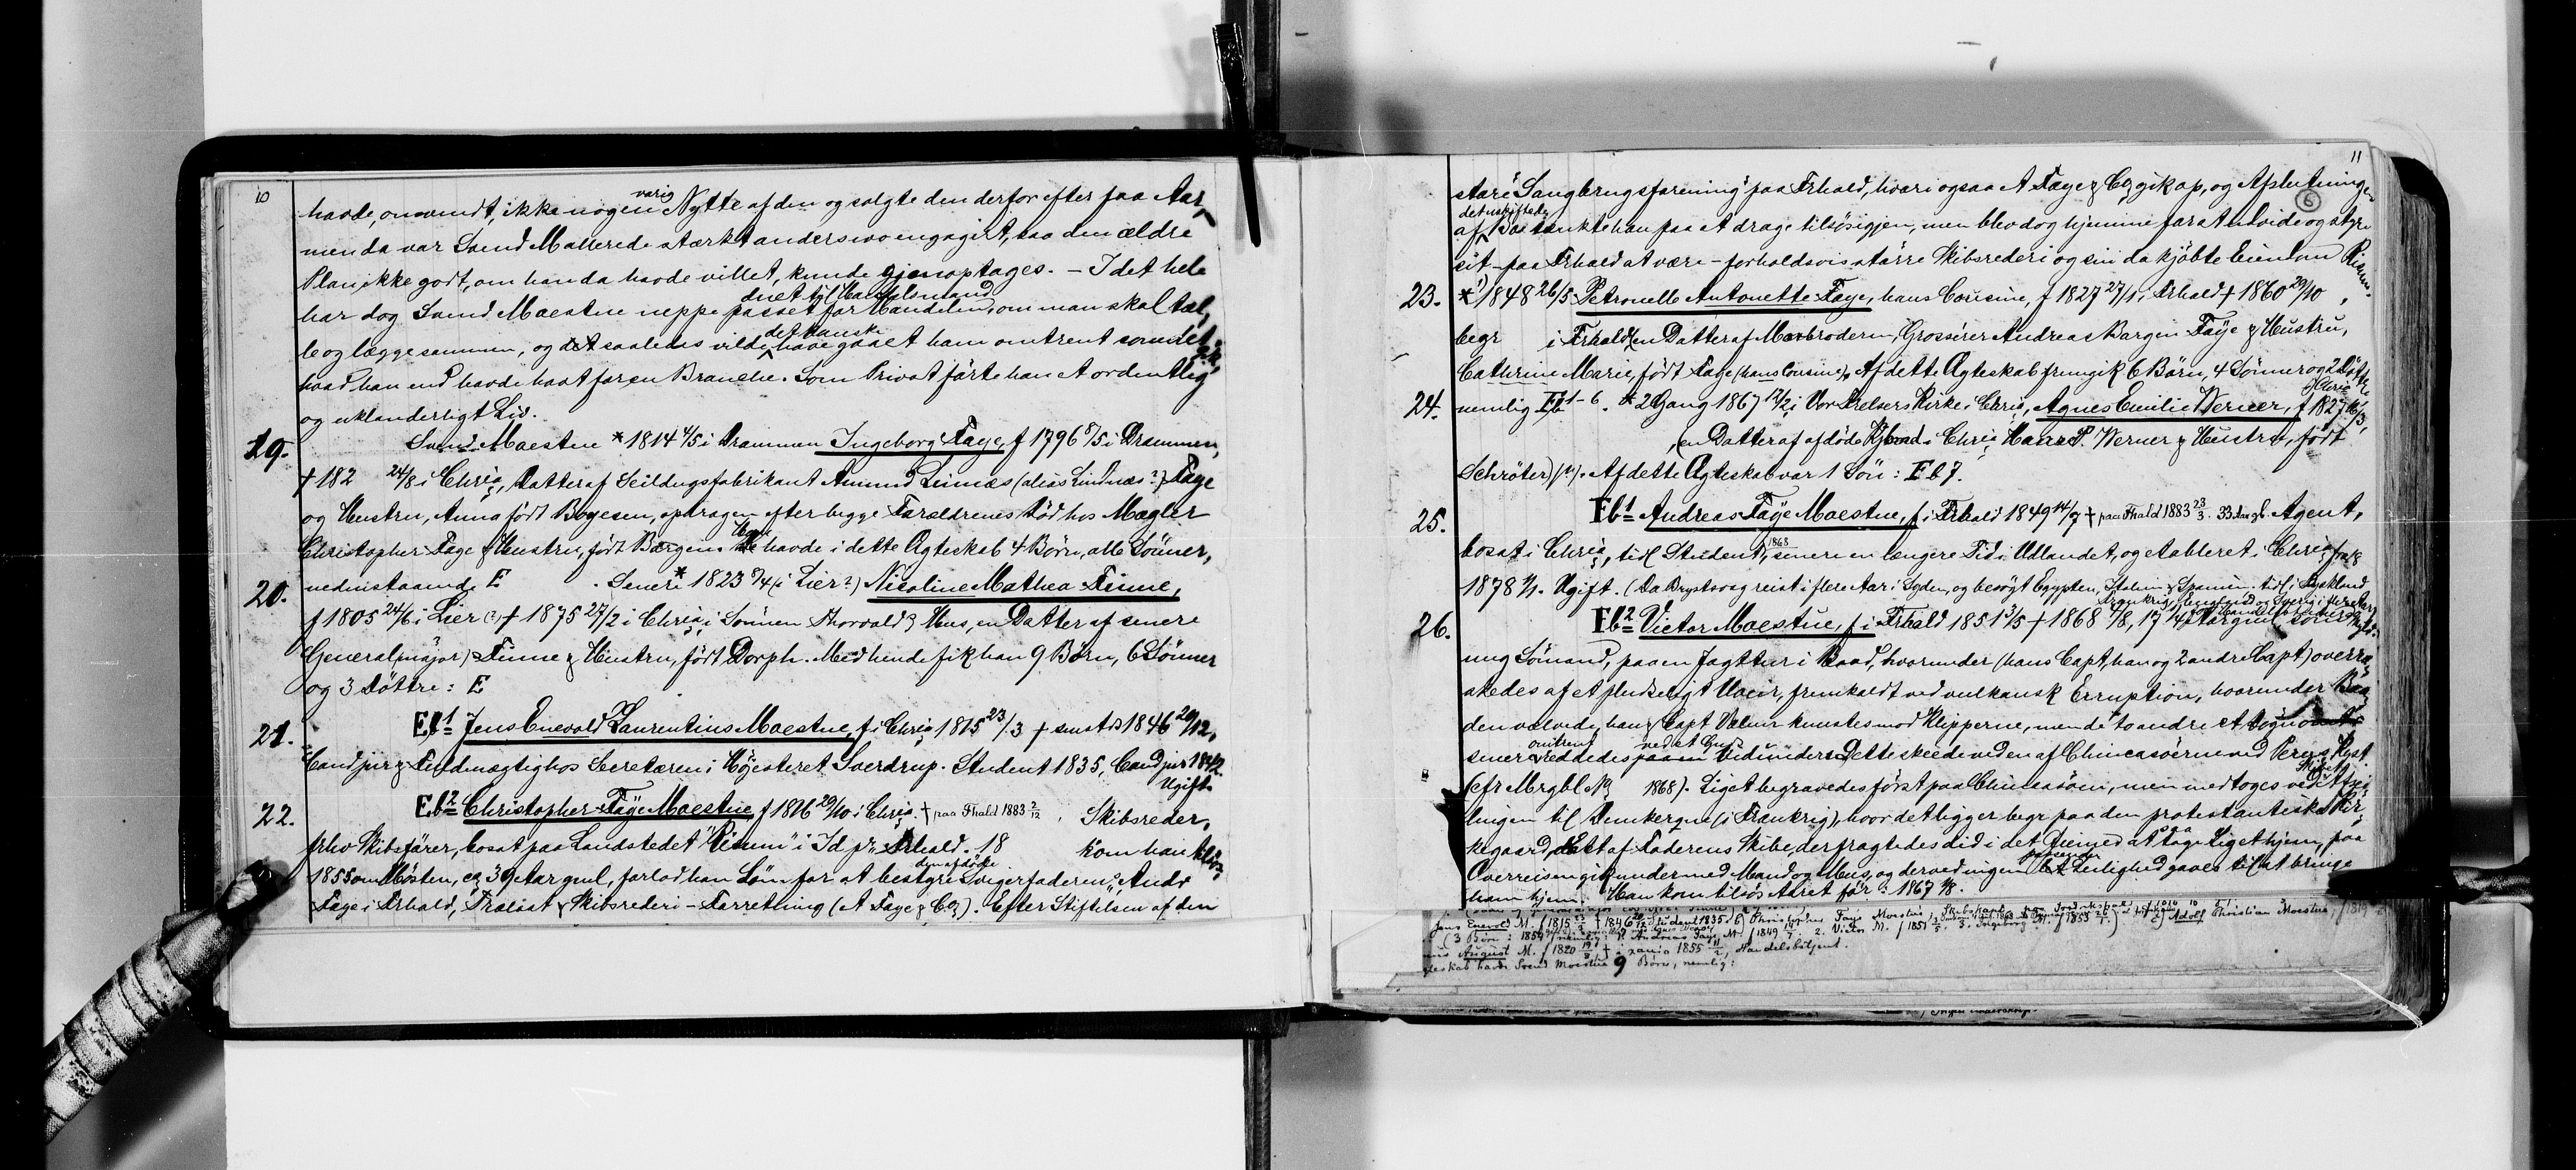 10
havde, omvendt, ikke nogen varig Nytte af den og solgte den derfor efter faa Aar,
men da var Svend M allerede stærkt anderswo engagirt, saa den ældre
Plan ikke godt, om han da havde villet, kunde gjenoptages. – I det hele
har dog Svend Moestue neppe passet for Handelen, duet til Handelsmand om man skal tæl-
le og lægge sammen, og det saaledes vilde det kanske have gaaet ham omtrent som det gik,
hvad han end havde havt for en Branche. Som Privat førte han et ordentlig
og uklanderligt Liv.
19. Svend Moestue * 1814 4/5 i Drammen Ingeborg Faye, f 1796 8/5 i Drammen,
† 182 24/8 i Chria, Datter af Seildugsfabrikant Amund Leimæs (alias Lindnæs?) Faye
og Hustru, Anna født Boyesen, opdragen efter begge Forældrenes Død hos Mægler
Christopher Faye & Hustru, født Børgen. havde i dette Ægteskab 4 Børn, alle Sønner,
20. nedenstaaende E . Senere * 1823 /4 (i Lier?) Nicoline Mathea Finne,
f 1805 24/6 i Lier (?) † 1875 27/2 i Chria i Sønnen Thorvalds Hus, en Datter af senere
General(major) Finne & Hustru, født Dorph. Med hende fik han 9 Børn, 6 Sønner
og 3 Døttre: E
21. Eb1 Jens Enevold Laurentius Moestue, f i Chria 1815 23/3 † smstds 1846 20/12,
Cand jur & Fuldmægtig hos Secretæren i Høiesteret Sverdrup. Student 1835, Cand jur 1842.
Ugift.
22. Eb2 Christopher Faye Moestue f 1816 29/10 i Chria. † paa Fhald 1883 2/12. Skibsreder,
frhv Skibsfører, bosat paa Landstedet "Risum" i Id pr Frhald. 18 kom han tilsøs,
1855 om Høsten, ca 39 Aar gml, forlod han Søen for at bestyre den afdøde Svigerfaderens, Andr
Faye i Frhald, Trælast & Skibsrederi-Forretning (A Faye & Co). Efter Stiftelsen af den
11
store "Saugbrugsforening" paa Frhald, hvori ogsaa A Faye & Co gik op, og Afslutningen
6
af det uskiftede Bo tænkte han paa at drage tilsøs igjen, men blev dog hjemme for at udvide og styre
sit – paa Frhald at være – forholdsvis større Skibsrederi og sin da kjøbte Eiendom Risum.
23. *1 1848 26/5 Petronelle Antonette Faye, hans Cousine, f 1827 27/1 i Frhald † 1860 29/10,
begr i Frhald (en Datter af Morbroderen, Grosserer Andreas Børgen Faye & Hustru,
Cathrine Marie, født Faye (hans Cousine). Af dette Ægteskab fremgik 6 Børn, 4 Sønner og 2 Døttre
24. nemlig Fb 1–6. * 2 Gang 1867 12/2 i Vor Frelsers Kirke i Chria, Agnes Emilie Werner, f i Chria 1827 16/3,
(en Datter af afdøde Kjbmd i Chria Hans P. Werner & Hustru, født
Schröter) (14). Af dette Ægteskab var 1 Søn: Fb 7.
25. Fb1 Andreas Faye Moestue, f i Frhald 1849 14/7 † paa Fhald 1883 23/3. 33 Aar gl. Agent,
bosat i Chria, tidl Student, 1868 senere en længere Tid i Udlandet, og etableret i Chria fra
1878 1/1. Ugift. (Da Brystsvag reist i flere Aar i Syden, og besøgt Egypten, Italien & Spanien. tidl i Tydskland
Frankrig, England og Sverig i flere Aar
26. Fb2 Victor Moestue, f i Frhald 1851 3/5 † 1868 /8, 17 1/4 Aar gml, som
ung Sømand, paa en Jagttur i Baad, hvorunder (hans Capt, han og 2 andre Capt) overra-
skedes af et pludseligt Uveir, fremkaldt ved vulkansk Erruption, hvorunder Baa-
den vælvede, han & Capt Velure knustes mod Klipperne, men de to andre et Døgn
senere omtrent reddedes ved et Guds Vidunder. Dette skeede ved en af Chincasøerne ved Perus Kyst
(cfr Mrgbl No 1868). Liget begravedes først paa Chincasøen, men medtoges ved Skibets Afsei-
lingen til Dunkerque (i Frankrig), hvor det ligger begr paa den protestantiske Kir-
kegaard. Et af Faderens Skibe, der fragtedes did i det Øiemed at tage Liget hjem, paa
Overreisen gik under med Mand og Mus, og derved ingen passende Leilighed gaves til at bringe
ham hjem. Han kom tilsøs Aaret før: 1867 /8.
Jens Enevold M. f 1815 23/3 † 1846 20/12 Student 1835. b) Christopher Faye Moestue, c) Adolf Christian Moestue, f 1819
(3 Børn: 1. Andreas Faye M. f 1849 14/7. 2. Victor M. f 1851 3/5. 3. Ingeborg M. f 1853
August M. f 1820 19/7 † i xania 1855 11/2, Handelsbetjent.
gteskab havde Svend Moestue 9 Børn, nemlig: